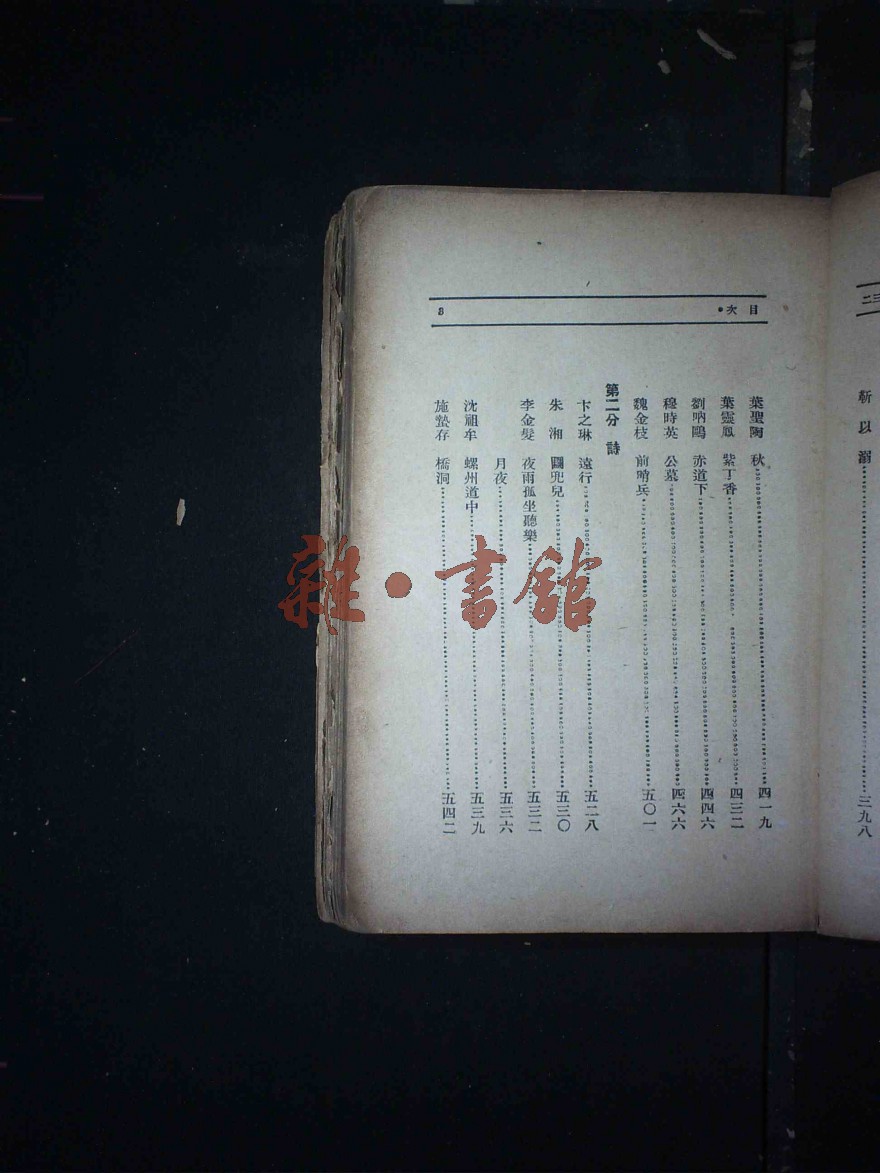 目次• 8
葉聖陶 秋 四一九
葉靈鳳 紫丁香 四三二
劉吶鷗 赤道下 四四六
穆時英 公墓 四六六
魏金枝 前哨兵 五〇一
第二分 詩
卞之琳 遠行 五二八
朱湘 圈兜兒 五三〇
李金髮 夜雨孤坐聽樂 五三二
月夜 五三六
沈祖牟 螺州道中 五三九
施蟄存 橋洞 五四二
靳以 溺 三九八
雜·書館